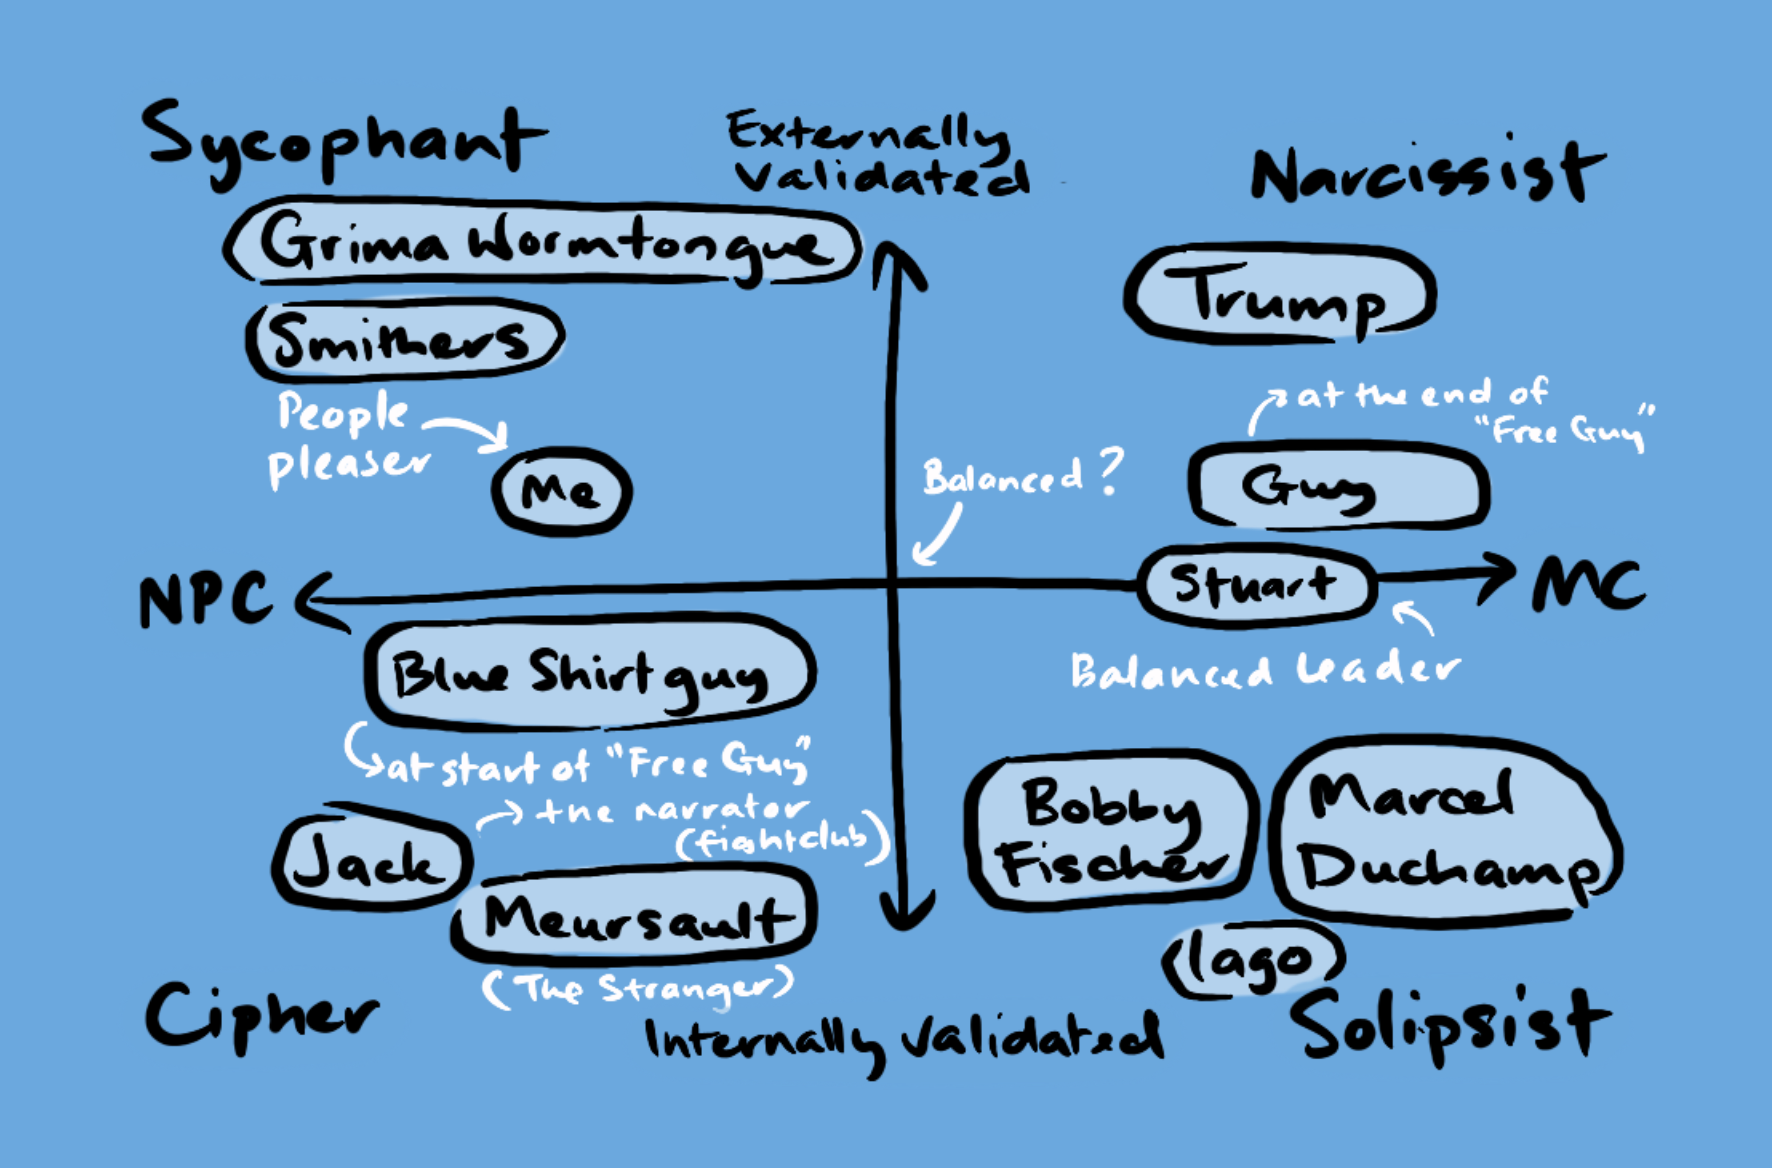 Sycophant
Externally
Validated
Narcissist
Grima Wormtongue
Smithers
Trump
People
pleaser
Me
at the end of
"Free Guy"
Guy
Balanced?
NPC
Stuart
MC
Balanced leader
Blue Shirt guy
at start of "Free Guy"
Jack
the narrator
(fightclub)
Meursault
(The Stranger)
Bobby
Fischer
Marcel
Duchamp
Iago
Cipher
Internally Validated
Solipsist